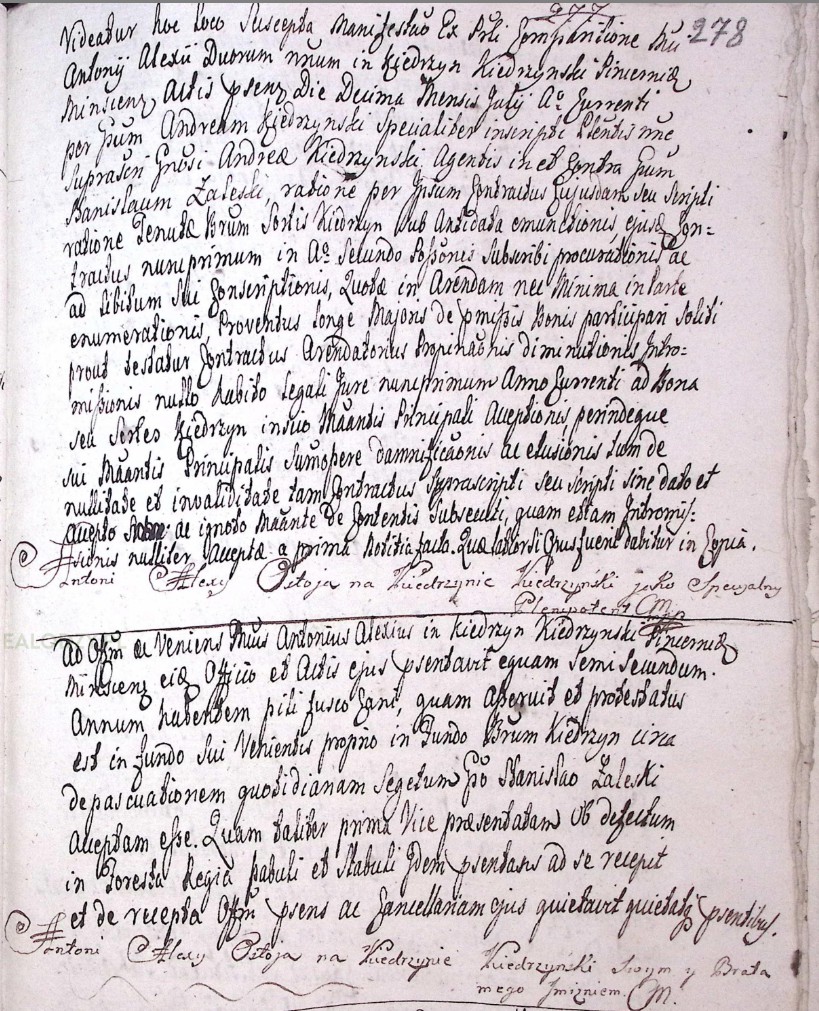 277
278
Videatur hoc loco Suscepta Manifestao Ex Prti Comparitione
Antonij Alexii Duorum nnum in Kiedrzyn Kiedrzynski Pincernæ
Minscien Actis psenz Die Decima Mensis Julij Aº Currenti
per Gnum Andream Kiedrzynski Specialiter inscripti Plentis nne
Suprascri Gnosi Andreæ Kiedrzynski Agentis in et Contra Gnum
Stanislaum Zaleski, ratione per Ipsum Contractus Cujusdam seu Scripti
ratione Tenutæ Brum Sortis Kiedrzyn sub Antidata emunctionis, ejusq Con=
tractus nuncprimum in Aº Secundo Possonis Subscribi procurationis ac
ad libitum Sui Conscriptionis, Quotæ in Arendam nec Minima in Parte
enumerationis, Proventus longe Majoris de pmissis Bonis participari Soliti
prout testatur Contractus Arendatorius Propinaonis diminutionis Intro=
missionis nullo habito legali Jure nuncprimum Anno Currenti ad Bona
seu Sortes Kiedrzyn in suo Maantis Principali Acceptionis perindeque
sui Maantis Principalis Sumopere damnificaonis ac elusionis tum de
nullitate et invaliditate tam Contractus Suprascripti seu Scripti sine dato et
accepto ac ignoto Maante de Contentis Subsecuti, quam etiam Intromis=
sionis nulliter Acceptæ a prima Notitia facta. Quæ labor si Gnus fuent dabitur in Copia.
Antoni Alexy Ostoja na Kiedrzynie Kiedrzyński jako Specyalny
Plenipotent Mp
Ad Offm ac Veniens Mcus Antonius Alexius in Kiedrzyn Kiedrzynski Pincernæ
Minscienz eiq Officio et Actis ejus psentavit equam Semi Secundum
Annum habentem pili fusco Cani, quam Aperuit et protestatus
est in fundo sui Venientis proprio in Fundo Brum Kiedrzyn circa
depascuationem quotidianam Segetum Gso Stanislao Zaleski
Acceptam esse. Quam taliter prima Vice præsentatam Ob defectum
in Foresta Regia pabuli et Stabuli Idem psentans ad se recepit
et de recepta Offm psens ac Cancellariam ejus quietavit quietatq psentibus.
Antoni Alexy Ostoja na Kiedrzynie Kiedrzyński Swym y Brata
mego Imieniem. Mp